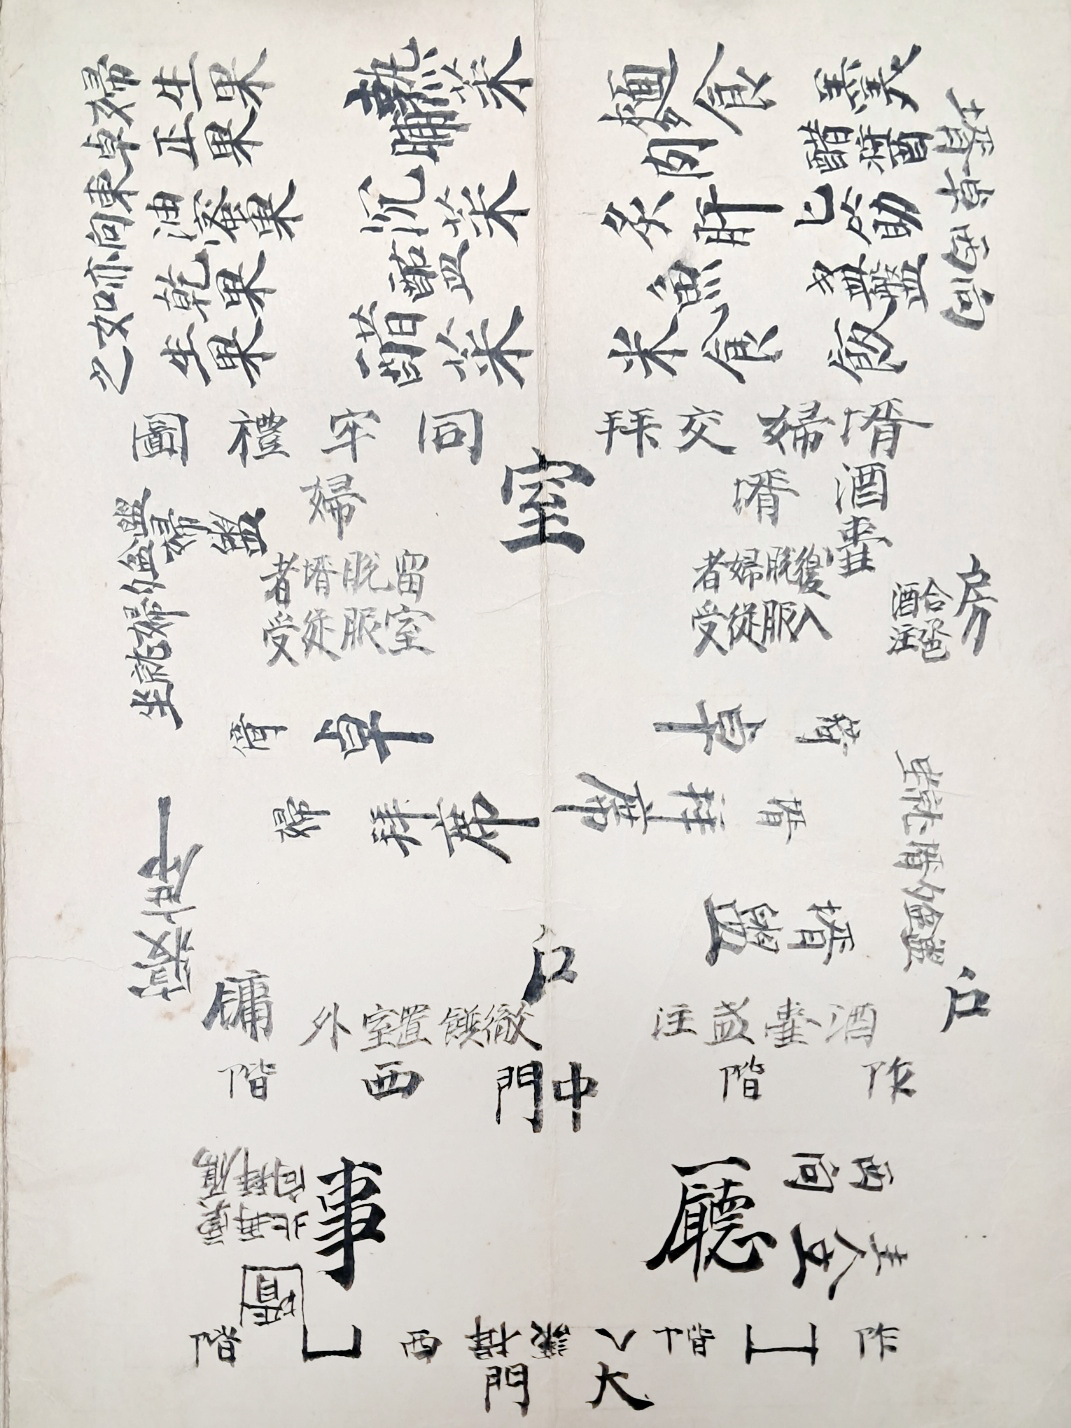 壻卓西向
羹
醋醬
匕筯
盞盤
飯
麵食
肉
炙肝
魚
米食
熟菜
脯
沉菜
醯
醋菜
生果
正果
油蜜果
乾果
生果
婦卓東向亦如之
壻婦交拜
同牢禮圖
室
房
酒壺
合卺
酒注
壻
復入脫服婦從者受
婦
留室脫服壻從者受
倚
卓
卓
倚
婦
拜席
拜席
壻
壻盥
戶
戶
牖
酒壺盞注
徹餕置室外
阼階
中門
西階
事廳
主人立
西向
北向再拜奠鴈
壻
阼階
揖讓入
西階
大門